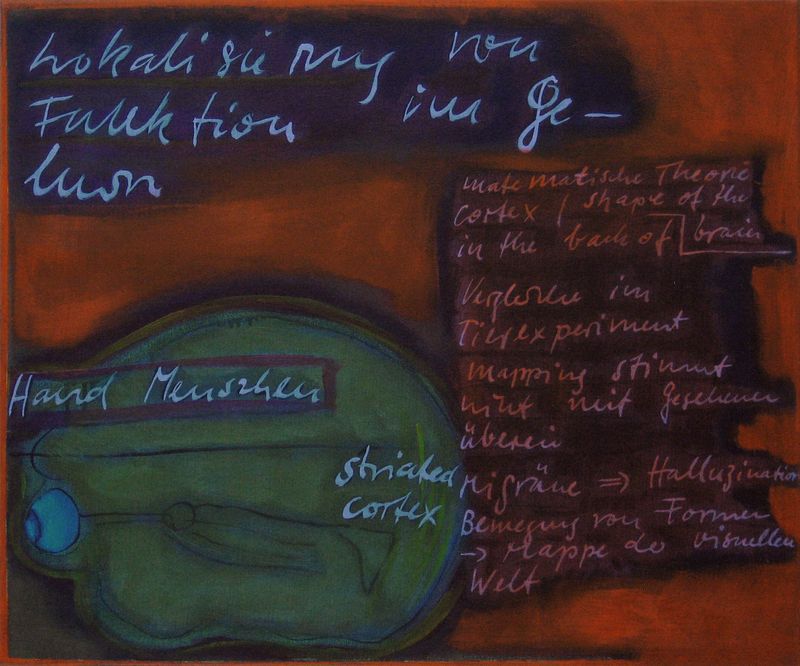 Lokalisierung von
Funktion im Ge-
hirn
matematische Theorie
Cortex / shape of the
in the back of brain
Vergleiche im
Tierexperiment
mapping stimmt
nicht mit Gesehenen
überein
Migräne => Halluzination
Bewegung von Formen
-> Mappe der visuellen
Welt
Hand Menschen
striated
cortex